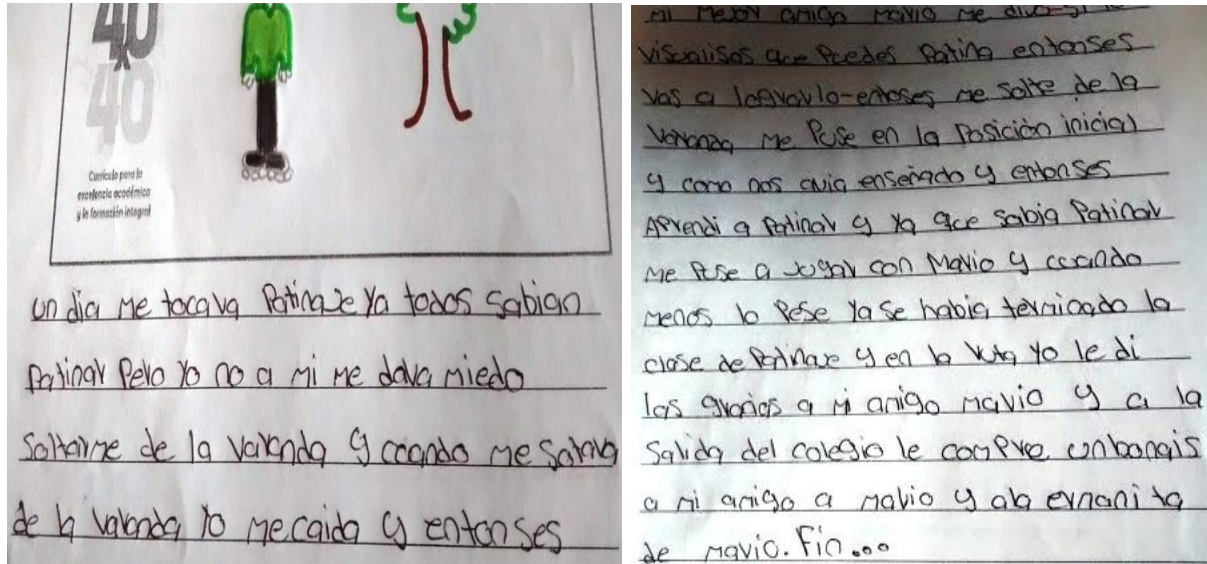 40
x
40
Currículo para la
excelencia académica
y la formación integral
un dia me tocava Patinaje Ya todos sabian
Patinar Pero Yo no a mi me dava miedo
soltarme de la varanda y cuando me soltava
de la varanda Yo me caida y entonses
mi mejor amigo Mavio me
visualisas que Puedes Patina entonses
vas a logravlo-entoses me solte de la
varanda me Puse en la Posición inicial
y como nos avia enseñado y entonses
APrendi a Patinar y Ya que sabia Patinar
me Puse a jugar con Mavio y cuando
menos lo Pese Ya se habia terminado la
clase de Patinaje y en la Ruta Yo le di
las gracias a mi amigo Mavio y a la
Salida del colegio le comPre un bonais
a mi amigo a mavio y ala ermanita
de mavio. Fin...